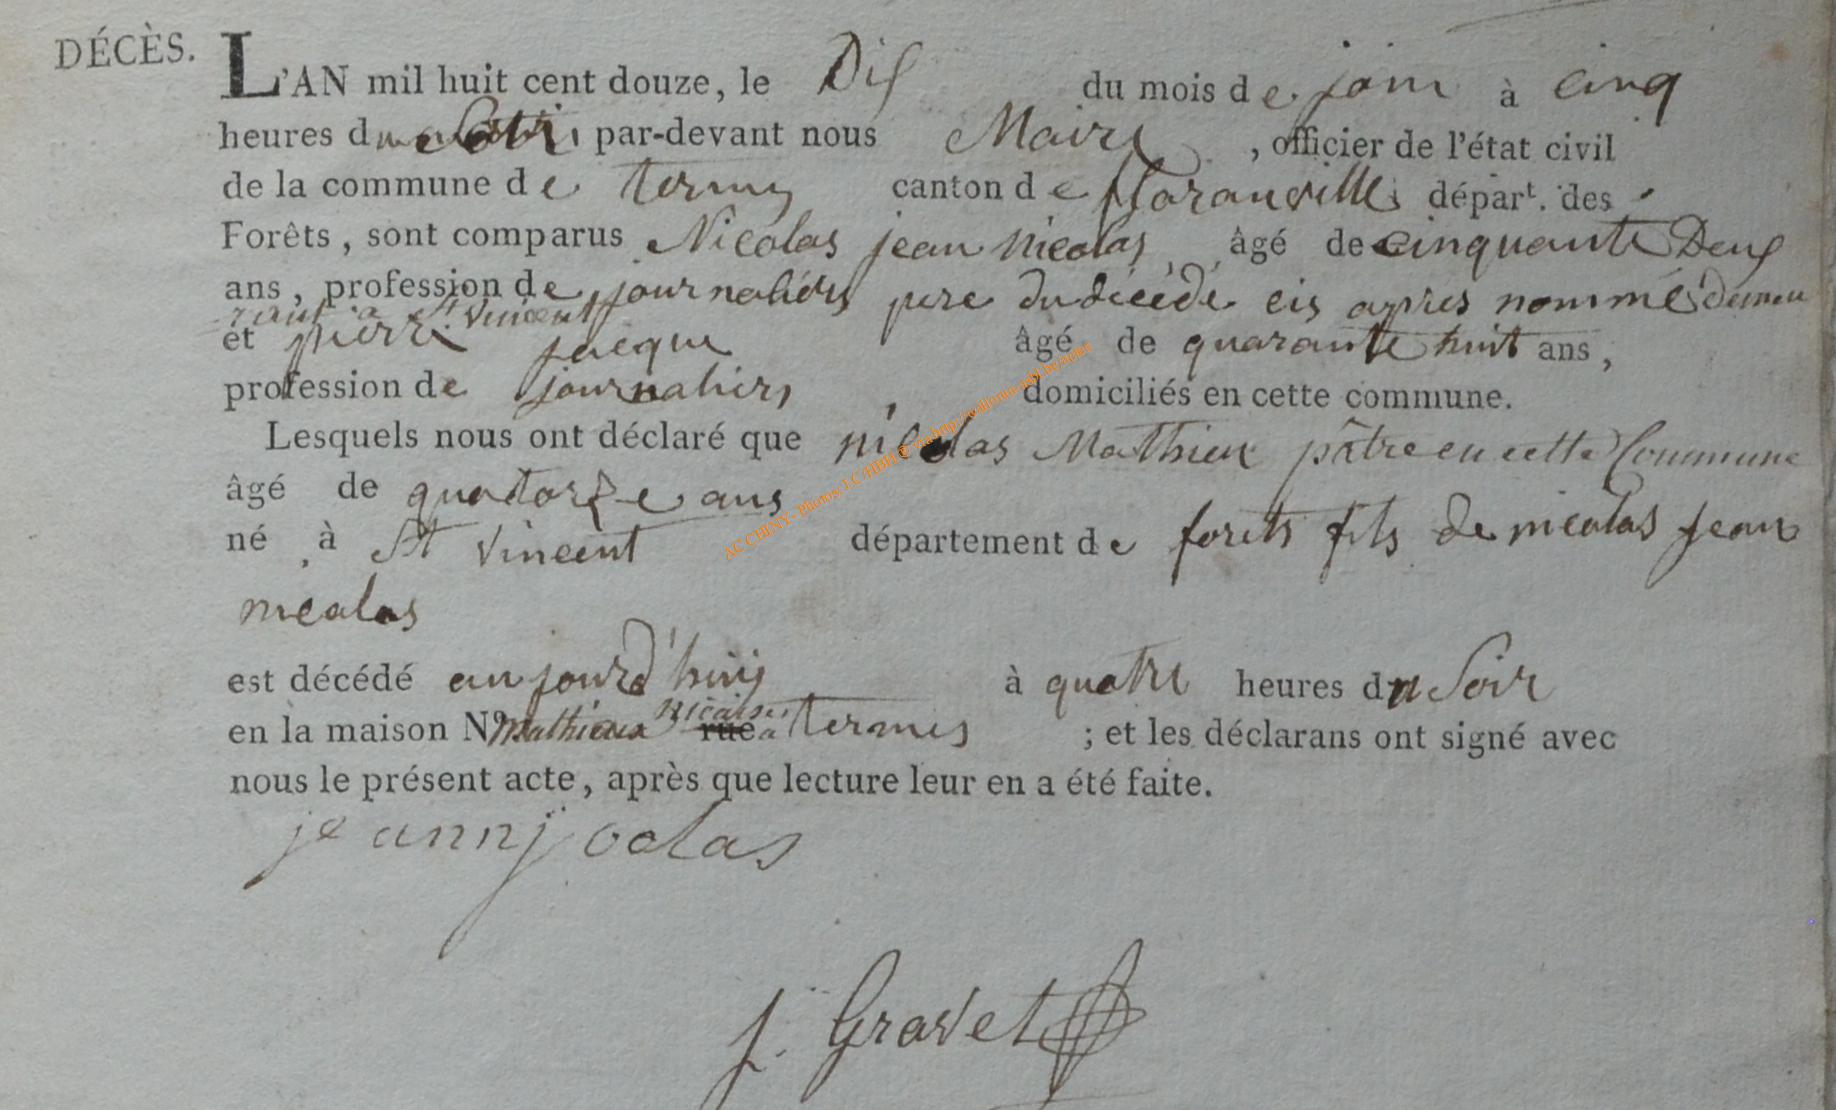 DÉCÈS. L'AN mil huit cent douze, le Dis du mois de join à cinq
heures du Soir, par-devant nous Maire, officier de l'état civil
de la commune de termes canton de floranville départ. des
Forêts, sont comparus Nicolas jean nicolas, âgé de cinquante Deux
ans, profession de journaliers pere du décédé cis apres nommé demeu
rant a St vincent
et pierre jacque âgé de quarante huit ans,
profession de journaliers, domiciliés en cette commune.
Lesquels nous ont déclaré que nicolas Mathieu pâtre en cette Commune
âgé de quatorze ans
né à St vincent département de forets fils de nicolas jean
nicolas
est décédé aujourd'huij à quatre heures du Soir
en la maison No Mathieux nicaise rue a termes ; et les déclarans ont signé avec
nous le présent acte, après que lecture leur en a été faite.
jean nijcolas
j. Gravet
AC CHINY - Photos J.C HBH